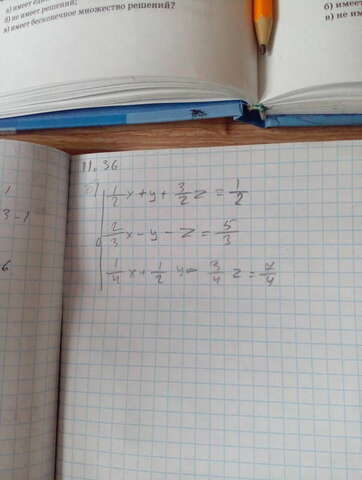 а) имеет еди
б) не имеет решений;
в) имеет бесконечное множество решений?
б) имеет
в) не им
11.36
б) 1/2 x + y + 3/2 z = 1/2
2/3 x - y - z = 5/3
1/4 x + 1/2 y - 3/4 z = 7/4
1
3-1
6